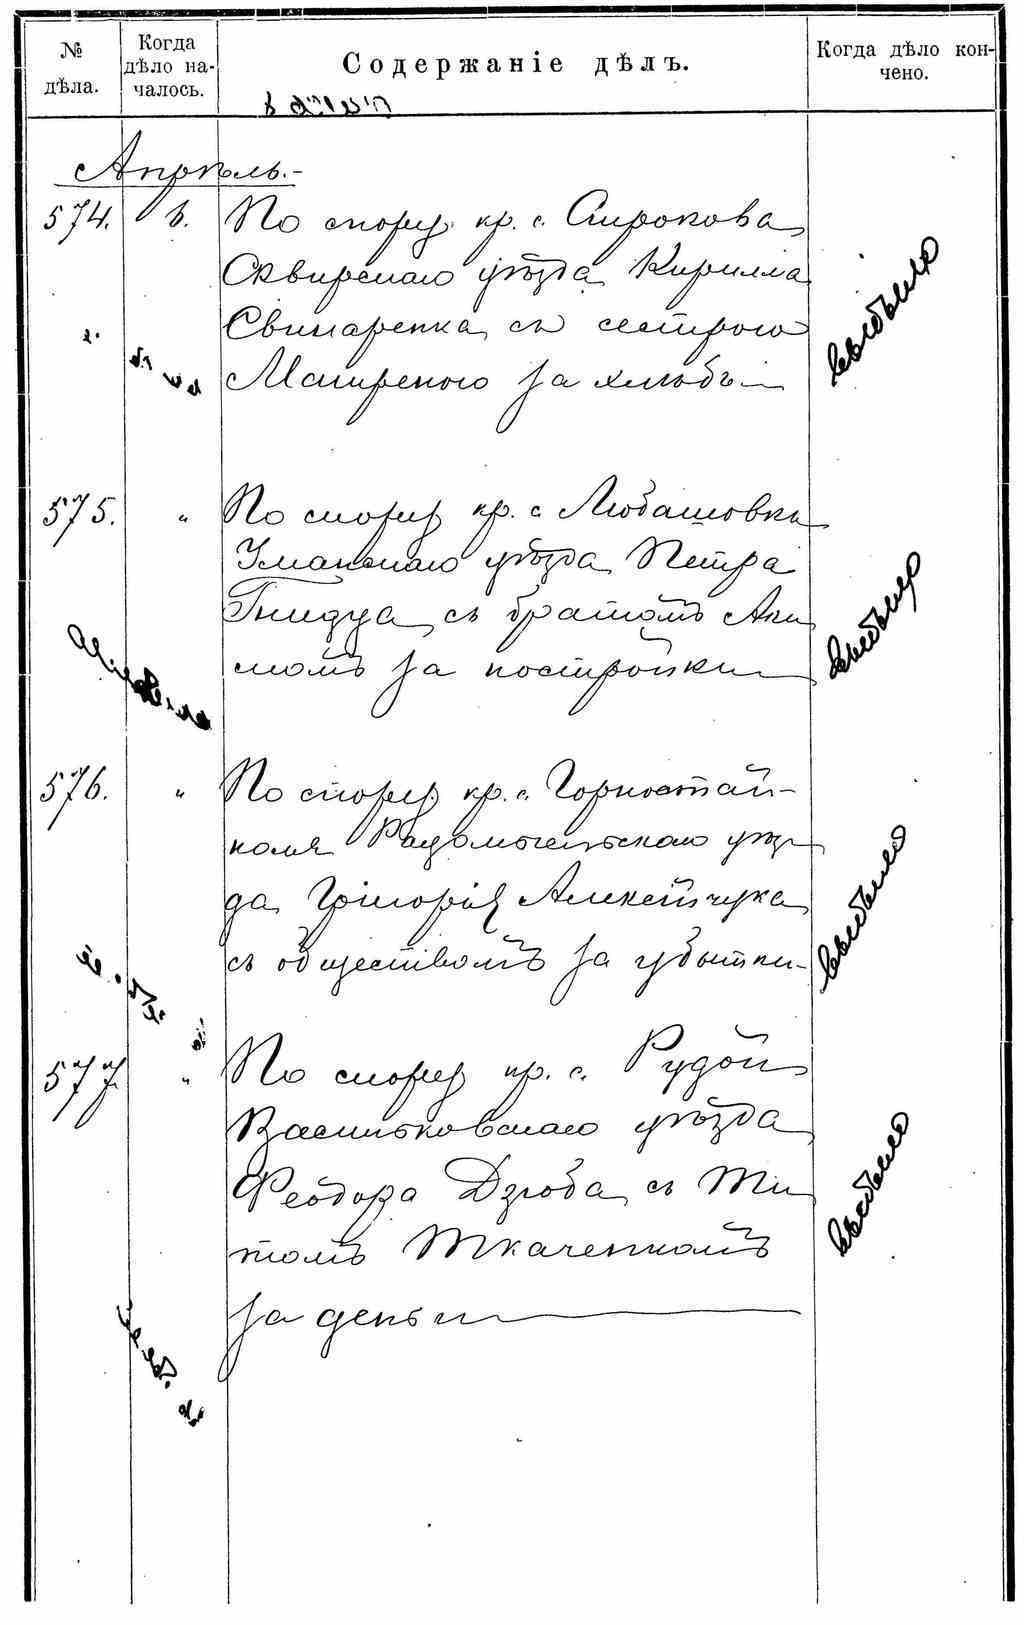 № дѣла.
Когда дѣло началось.
Содержаніе дѣлъ.
Когда дѣло кончено.
Апрѣль.-
574. 6. По спору кр. с. Сиропова
Сквирскаго уѣзда Кирилла
Свинаренка съ сестрою
за хлѣбъ—
выбыло
575. " По спору кр. с. Любашовки
Уманскаго уѣзда Петра
Гнидца съ братомъ Аки
момъ за постройки—
выбыло
576. " По спору кр. с. Горностай-
поля Радомысльскаго уѣз
да Грігорія Алексѣйчука
съ обществомъ за убытки-
выбыло
577. " По спору кр. с. Рудой
Васильковскаго уѣзда
Феодора Дзюба съ Ти
томъ Ткаченкомъ
за деньги—
выбыло